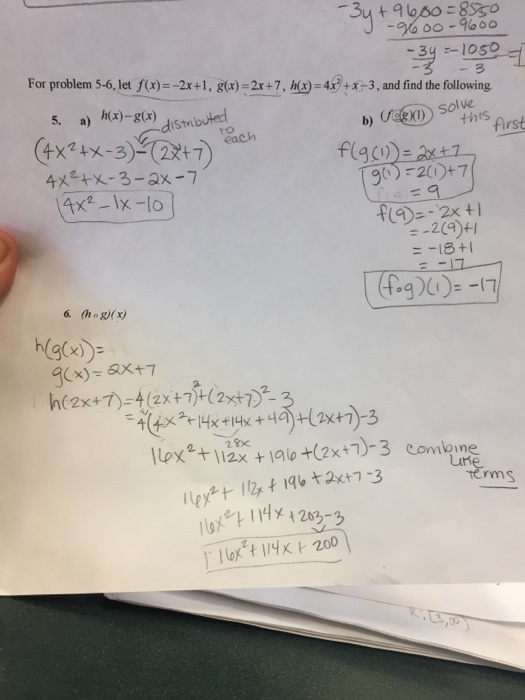 -3y + 9600 = 8550
-9600 -9600
-3y = -1050
-3 -3
For problem 5-6, let f(x) = -2x+1, g(x) = 2x+7, h(x) = 4x²+x-3, and find the following.
5. a) h(x) - g(x)
distributed to each
(4x²+x-3)-(2x+7)
4x²+x-3-2x-7
4x²-1x-10
b) (f∘g)(1) solve this first
f(g(1)) = 2x+7
g(1) = 2(1)+7
= 9
f(9) = -2x+1
= -2(9)+1
= -18+1
= -17
(f∘g)(1) = -17
6. (h∘g)(x)
h(g(x)) =
g(x) = 2x+7
h(2x+7) = 4(2x+7)²+(2x+7)²-3
= 4(4x²+14x+14x+49)+(2x+7)-3
28x
16x²+112x+196+(2x+7)-3 combine like terms
16x²+112x+196+2x+7-3
16x²+114x+203-3
16x²+114x+200
R: [3,∞)